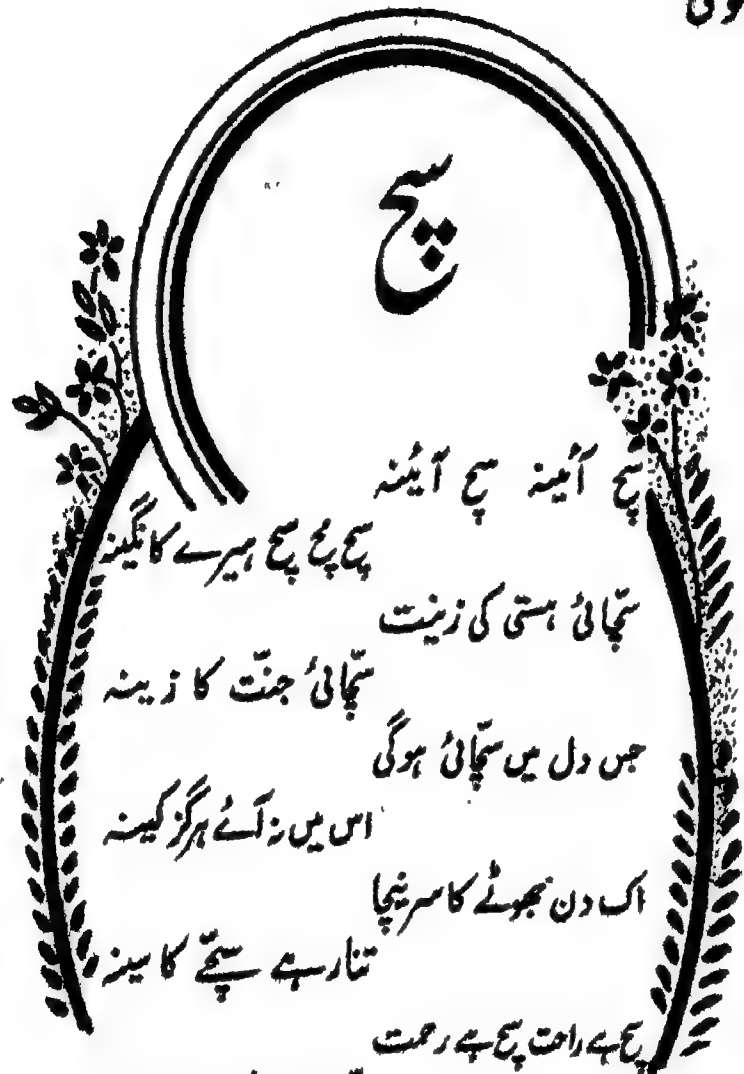 سچ
سچ آئینہ سچ آئینہ
سچ مچ سچ ہیرے کا نگینہ
سچّائی ہستی کی زینت
سچّائی جنّت کا زینہ
جس دل میں سچّائی ہوگی
اس میں نہ آئے ہرگز کینہ
اک دن جھوٹے کا سر نیچا
تنا رہے سچّے کا سینہ
سچ ہے راحت سچ ہے رحمت